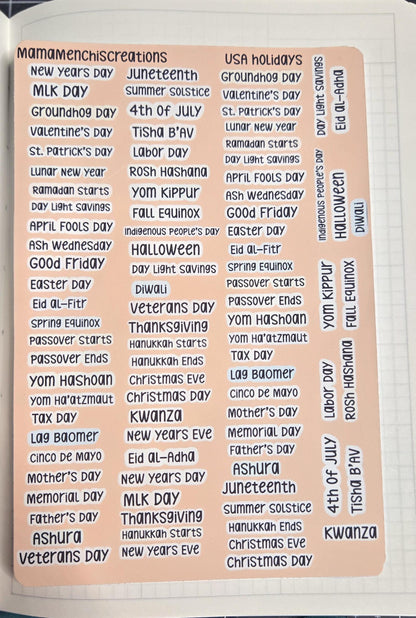 MamaMenchiscreations
New Years Day
MLK Day
Groundhog Day
Valentine's Day
St. Patrick's Day
Lunar New Year
Ramadan Starts
Day Light Savings
April Fools Day
Ash Wednesday
Good Friday
Easter Day
Eid al-Fitr
Spring Equinox
Passover Starts
Passover Ends
Yom HaShoah
Yom Ha'atzmaut
Tax Day
Lag BaOmer
Cinco De Mayo
Mother's Day
Memorial Day
Father's Day
Ashura
Veterans Day
Juneteenth
Summer Solstice
4th Of July
Tisha B'Av
Labor Day
Rosh Hashana
Yom Kippur
Fall Equinox
Indigenous People's Day
Halloween
Day Light Savings
Diwali
Veterans Day
Thanksgiving
Hanukkah Starts
Hanukkah Ends
Christmas Eve
Christmas Day
Kwanza
New Years Eve
Eid al-Adha
New Years Day
MLK Day
Thanksgiving
Hanukkah Starts
New Years Eve
USA Holidays
Groundhog Day
Valentine's Day
St. Patrick's Day
Lunar New Year
Ramadan Starts
Day Light Savings
April Fools Day
Ash Wednesday
Good Friday
Easter Day
Eid al-Fitr
Spring Equinox
Passover Starts
Passover Ends
Yom HaShoah
Yom Ha'atzmaut
Tax Day
Lag BaOmer
Cinco De Mayo
Mother's Day
Memorial Day
Father's Day
Ashura
Juneteenth
Summer Solstice
Hanukkah Ends
Christmas Eve
Christmas Day
Day Light Savings
Eid al-Adha
Indigenous People's Day
Halloween
Diwali
Yom Kippur
Fall Equinox
Labor Day
Rosh Hashana
4th Of July
Tisha B'Av
Kwanza